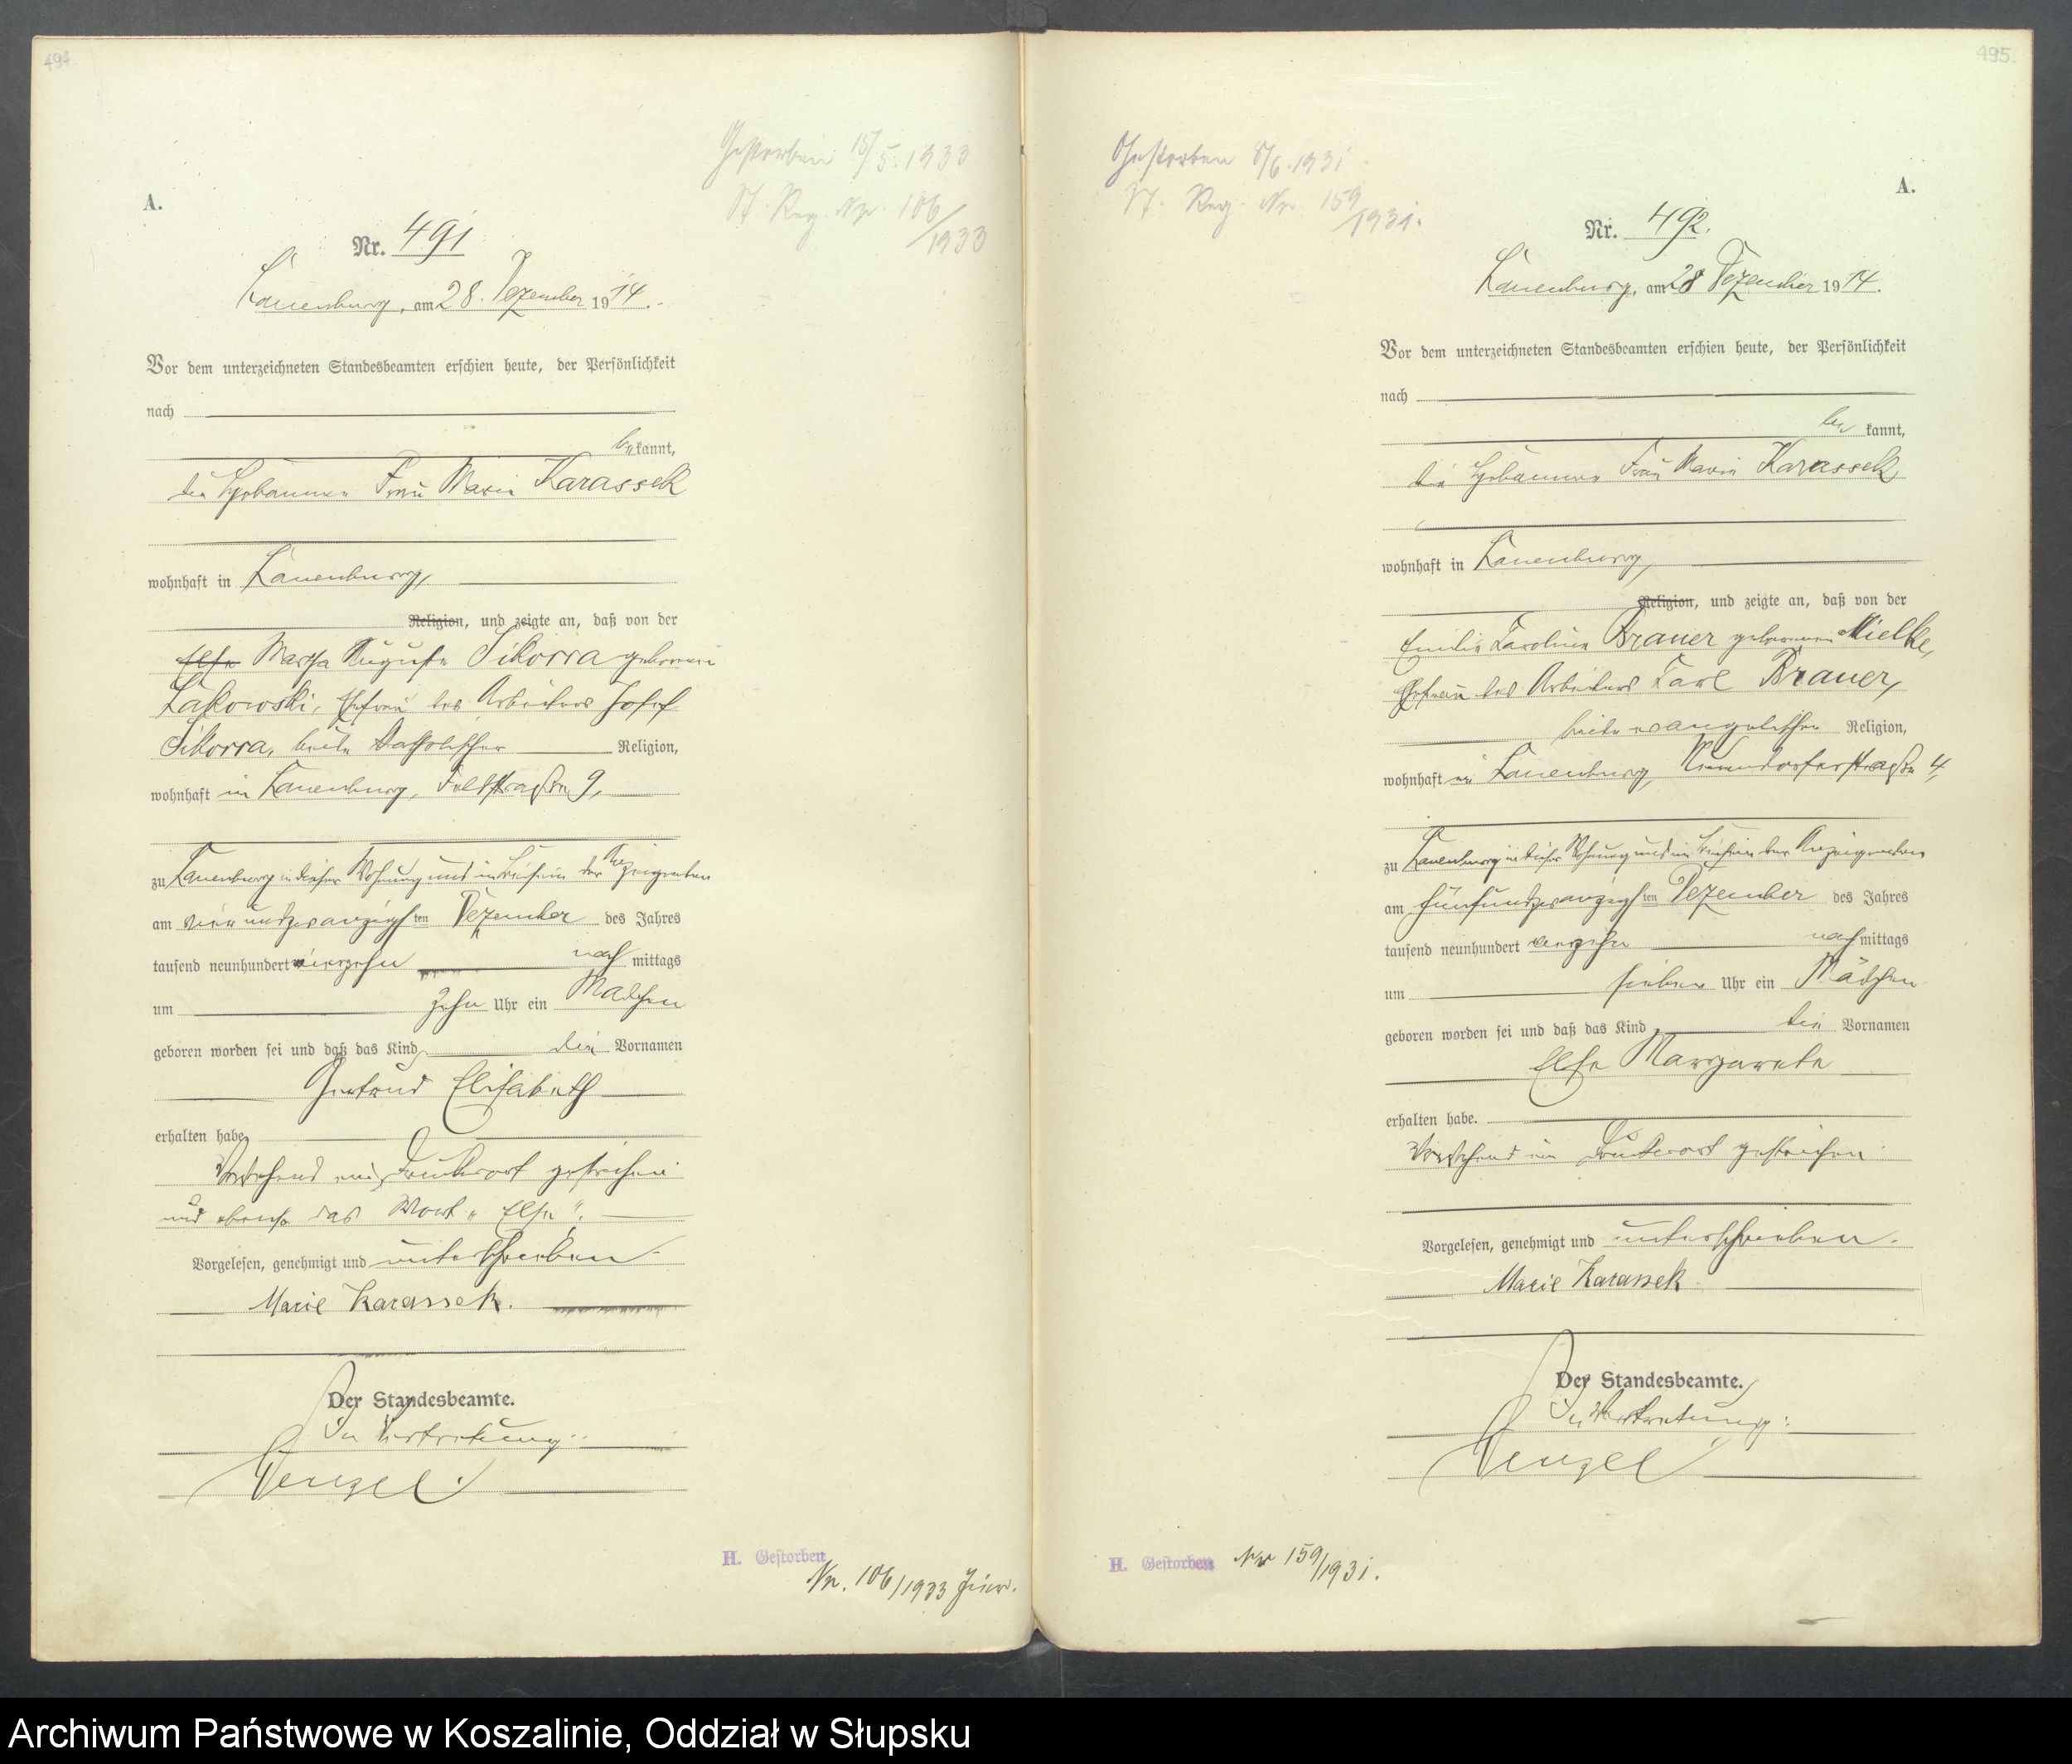 494
Gestorben 15/5.1933
St. Reg. Nr. 106/1933
A.
Nr. 491
Lauenburg, am 28. Dezember 1914.
Vor dem unterzeichneten Standesbeamten erschien heute, der Persönlichkeit
nach
bekannt,
die Hebamme Frau Marie Karassek
wohnhaft in Lauenburg,
Religion, und zeigte an, daß von der
Else Martha Auguste Sikorra geborenen
Zakowski, Ehefrau des Arbeiters Josef
Sikorra, beide katholischer Religion,
wohnhaft in Lauenburg, Feldstraße 9,
zu Lauenburg in dieser Wohnung und im Beisein der Anzeigenden
am vierundzwanzigsten Dezember des Jahres
tausend neunhundert vierzehn nachmittags
um zehn Uhr ein Mädchen
geboren worden sei und daß das Kind die Vornamen
Gertrud Elisabeth
erhalten habe
Vorstehend ein Druckwort gestrichen
und ebenso das Wort „Else“.
Vorgelesen, genehmigt und unterschrieben
Marie Karassek.
Der Standesbeamte.
In Vertretung:
Wenzel.
H. Gestorben
Nr. 106/1933 hier.
495.
Gestorben 8/6.1931
St. Reg. Nr. 159/1931.
A.
Nr. 492.
Lauenburg, am 28 Dezember 1914.
Vor dem unterzeichneten Standesbeamten erschien heute, der Persönlichkeit
nach
bekannt,
die Hebamme Frau Marie Karassek
wohnhaft in Lauenburg,
Religion, und zeigte an, daß von der
Emilie Karoline Brauer geborenen Mielke,
Ehefrau des Arbeiters Karl Brauer,
beide evangelischer Religion,
wohnhaft in Lauenburg, 4,
zu Lauenburg in dieser Wohnung und im Beisein der Anzeigenden
am fünfundzwanzigsten Dezember des Jahres
tausend neunhundert vierzehn nachmittags
um sieben Uhr ein Mädchen
geboren worden sei und daß das Kind die Vornamen
Else Margarete
erhalten habe.
Vorstehend ein Druckwort gestrichen
Vorgelesen, genehmigt und unterschrieben.
Marie Karassek
Der Standesbeamte.
In Vertretung:
Wenzel
H. Gestorben Nr 159/1931.
Archiwum Państwowe w Koszalinie, Oddział w Słupsku